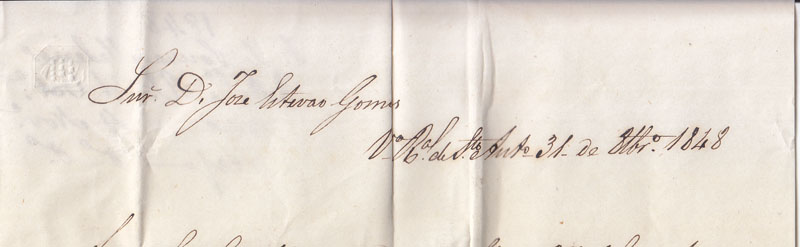 Snr. D. Jose Estevao Gomes
Va. Ral. de Sto. Anto. 31 de 8bro. 1848